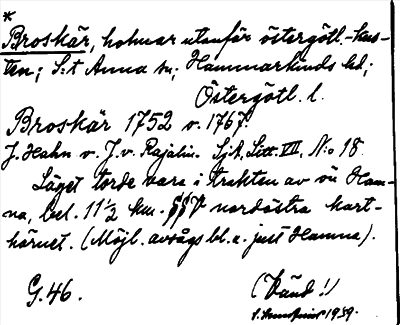 *
Broskär, holmar utanför östergötl.-kus-
ten; S:t Anna sn; Hammarkinds hd;
Östergötl. l.
Broskär 1752 v. 1767.
J. Hahn v. J. v. Rajalin. Sjk, Litt. VII, N:o 18
Läget torde vara i trakten av ön Ham-
na, bel. 11 1/2 km. nordöstra kart-
hörnet. (Möjl. avsågs bl. a. just Hamna).
G. 46.
(Känd!)
1939.